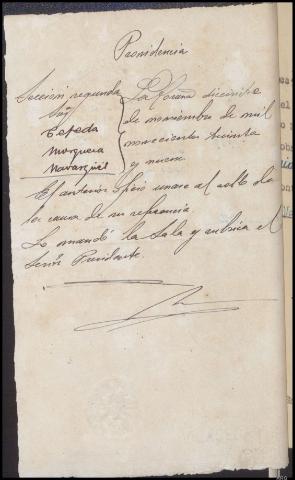 Providencia
Sección segunda
Sres
Tejeda
Mosquera
Navarrete
La Coruña diecisiete
de noviembre de mil
novecientos treinta
y nueve
El anterior oficio unase al rollo de
la causa de su referencia
Lo mandó la Sala y rubrica el
Señor Presidente.